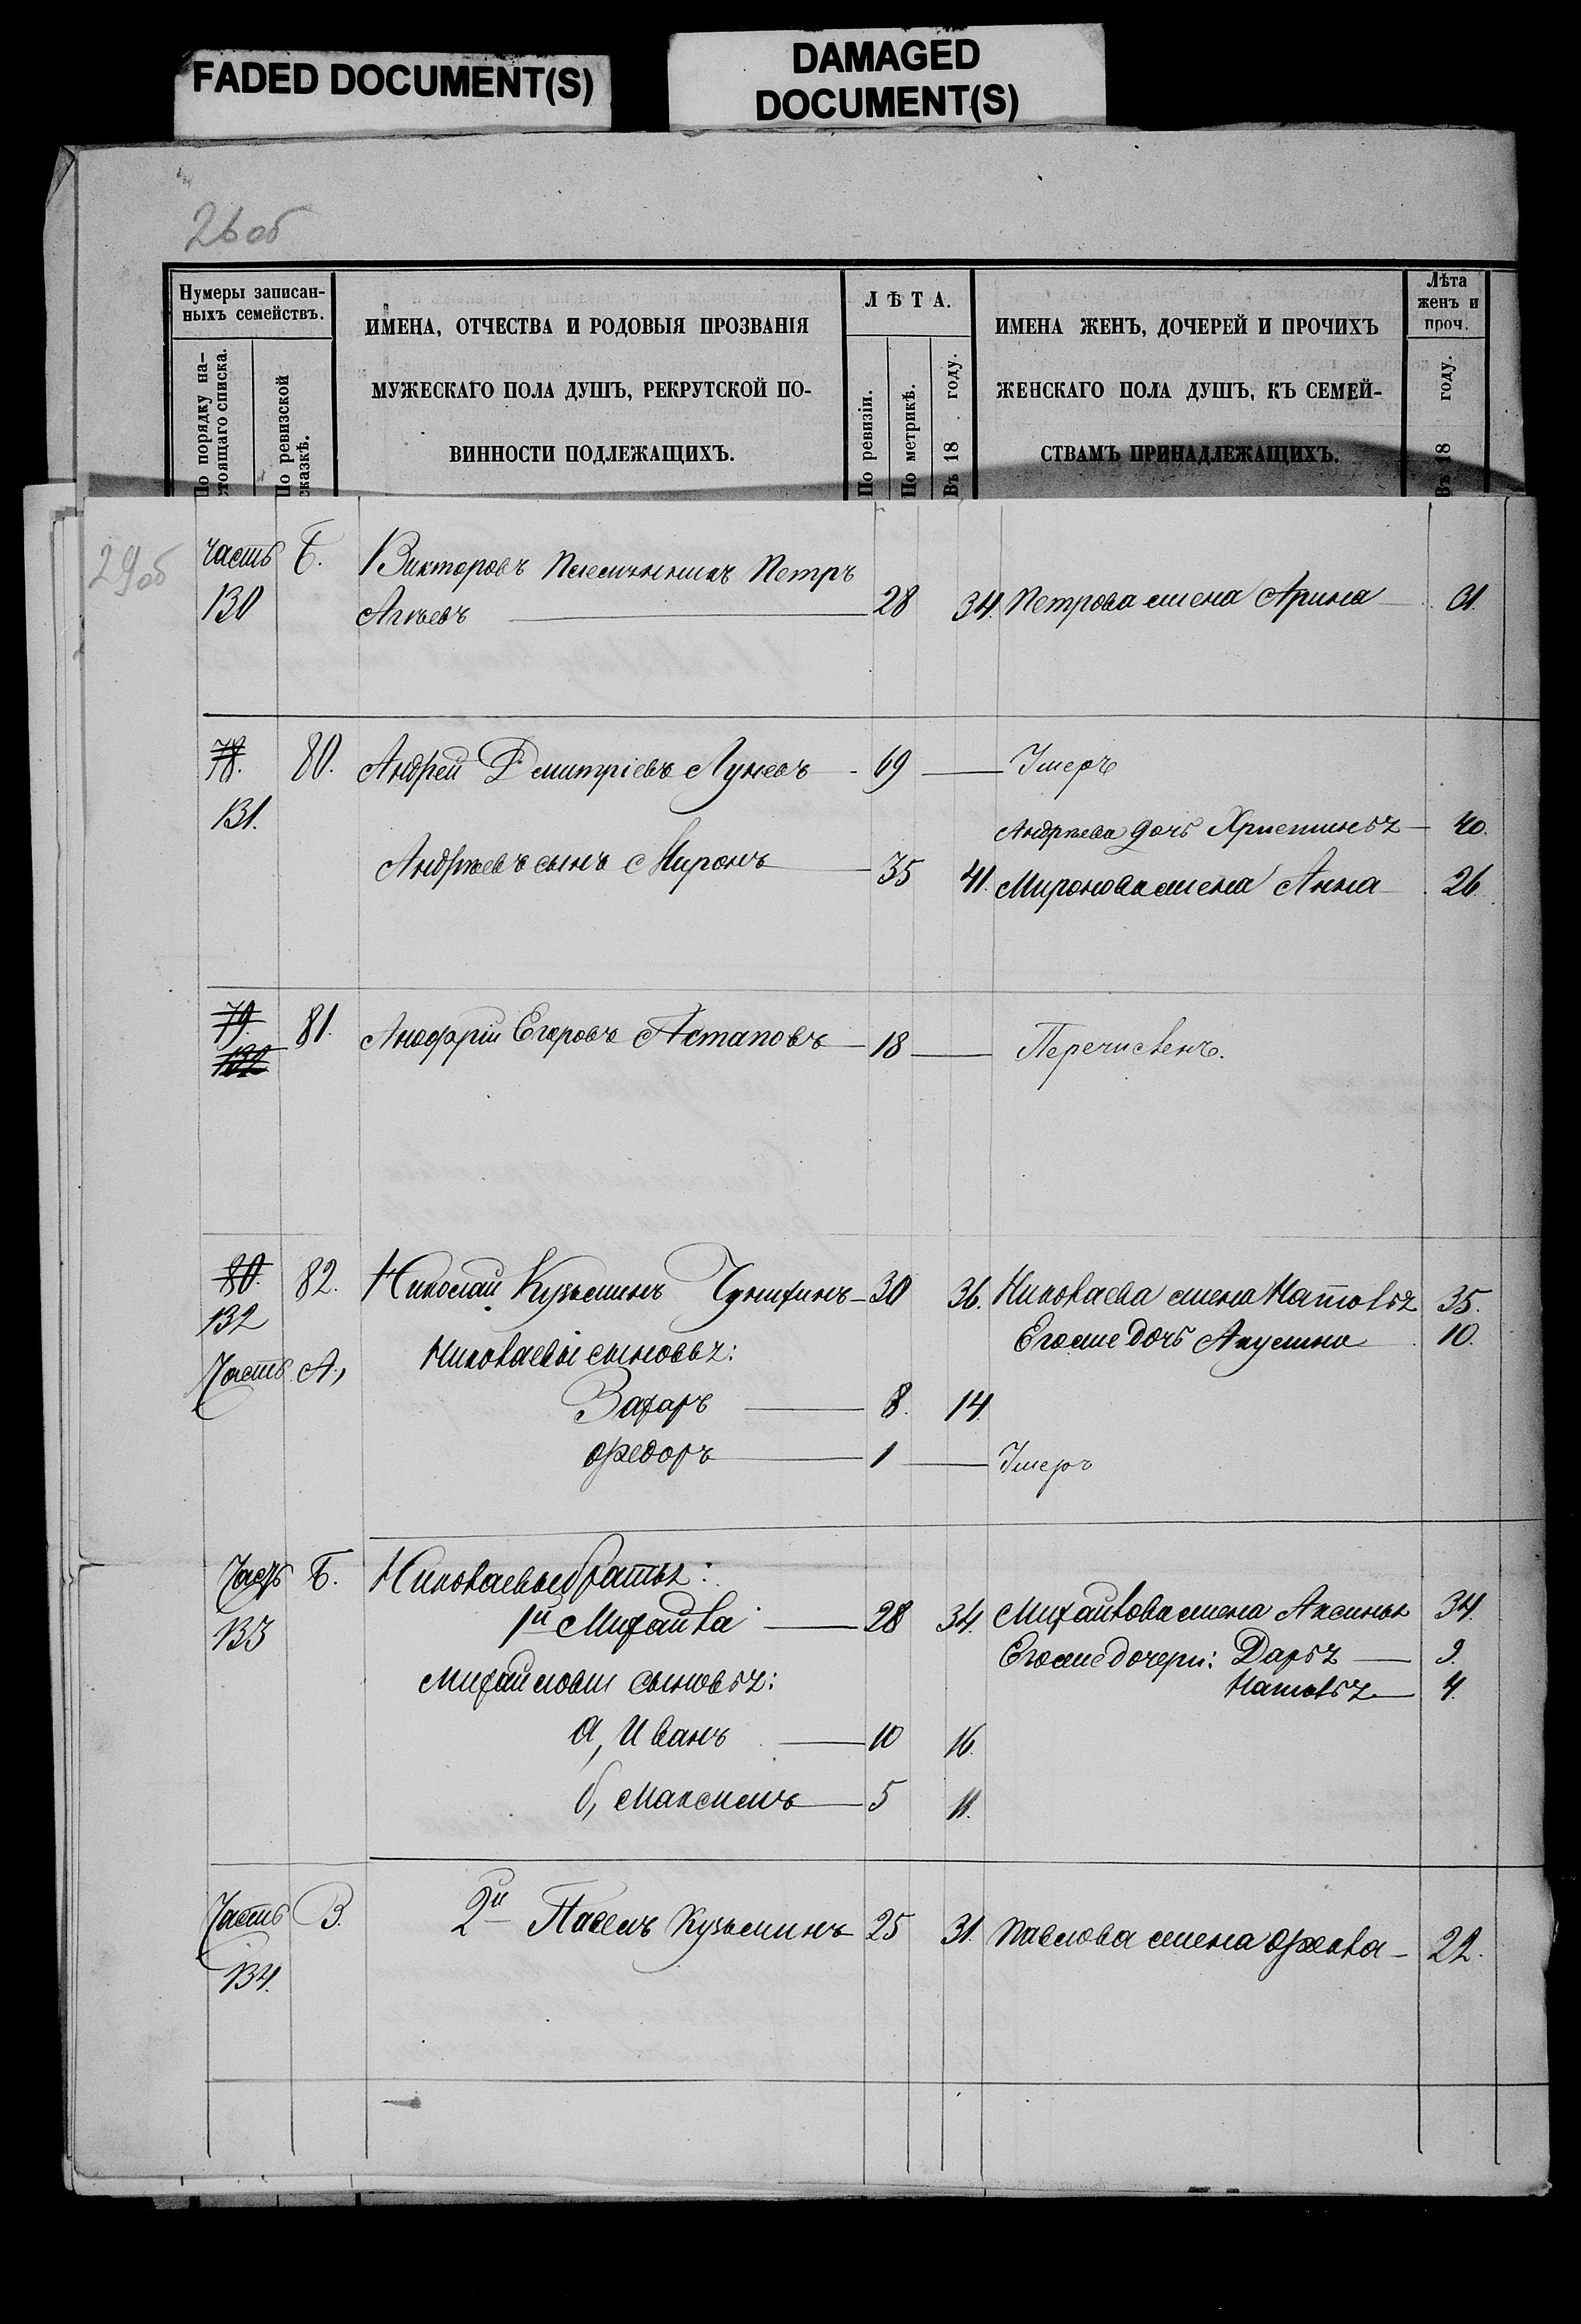 FADED DOCUMENT(S)
DAMAGED
DOCUMENT(S)
26 об
Нумеры записан-
ныхъ семействъ.
По порядку на-
стоящаго списка.
По ревизской
сказкѣ.
ИМЕНА, ОТЧЕСТВА И РОДОВЫЯ ПРОЗВАНІЯ
МУЖЕСКАГО ПОЛА ДУШЪ, РЕКРУТСКОЙ ПО-
ВИННОСТИ ПОДЛЕЖАЩИХЪ.
ЛѢТА.
По ревизіи.
По метрикѣ.
Въ 18 году.
ИМЕНА ЖЕНЪ, ДОЧЕРЕЙ И ПРОЧИХЪ
ЖЕНСКАГО ПОЛА ДУШЪ, КЪ СЕМЕЙ-
СТВАМЪ ПРИНАДЛЕЖАЩИХЪ.
Лѣта
женъ и
проч.
Въ 18 году.
29 об
Часть Б. Викторовъ племянникъ Петръ
130 28 34. Петрова жена Арина 31.
78. 80. Андрей Дмитріевъ Луневъ 69 Умеръ
131. Андреева дочь Христинья 40.
Андреевъ сынъ Миронъ 35 41. Миронова жена Анна 26.
79. 81. Аноффрій Егоровъ Астаповъ 18 Перечисленъ.
132
80. 82. Николай Кузьминъ 30 36. Николаева жена Наталья 35.
132 Егоже дочь Акулина 10.
Часть А, Николаевы сыновья:
Захаръ 8. 14.
Федоръ 1 Умеръ
Часть Б. Николаевы братья:
133 1й Михайла 28 34. Михайлова жена Аксинья 34.
Егоже дочери: Дарья 9.
Михайловы сыновья: Наталья 4.
а, Иванъ 10 16.
б, Максимъ 5 11.
Часть В. 2й Павелъ Кузьминъ 25 31. Павлова жена Фекла 22.
134.